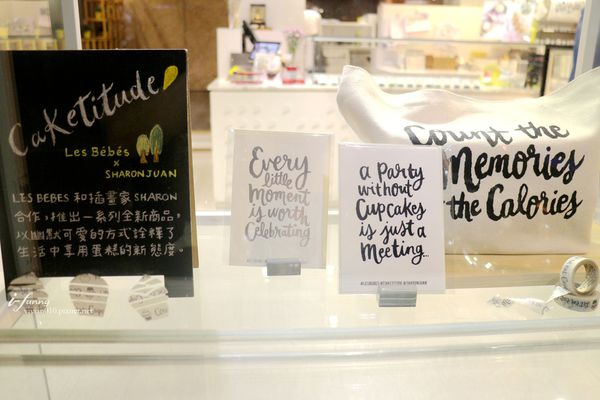 Caketitude
Les Bébés
x
SHARONJUAN
LES BEBES 和插畫家 SHARON
合作,推出一系列全新商品,
以幽默可愛的方式詮釋了
生活中享用蛋糕的新態度。
Every
little
Moment
is worth
Celebrating
a party
without
Cupcakes
is just a
Meeting...
#LESBEBES #CAKETITUDE #SHARONJUAN
Count the
Memories
the Calories